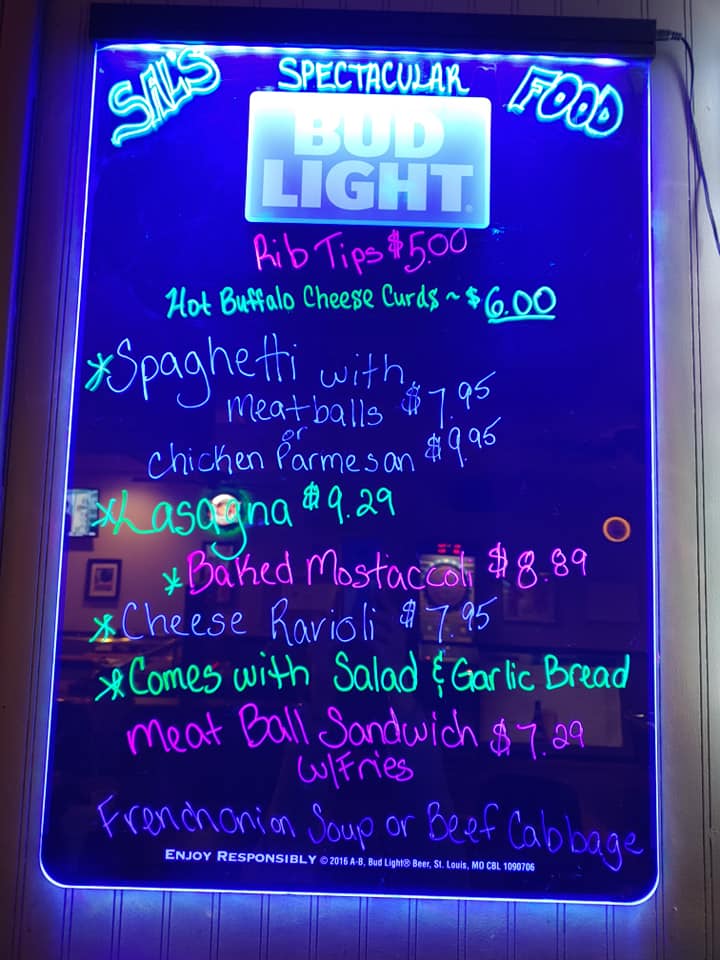 SAL'S SPECTACULAR FOOD
BUD
LIGHT
Rib Tips $5.00
Hot Buffalo Cheese Curds ~ $6.00
*Spaghetti with
meatballs $7.95
or
chicken Parmesan $9.95
*Lasagna $9.29
*Baked Mostaccoli $8.89
*Cheese Ravioli $7.95
*Comes with Salad & Garlic Bread
Meat Ball Sandwich $7.29
w/Fries
Frenchonion Soup or Beef Cabbage
ENJOY RESPONSIBLY © 2016 A-B, Bud Light® Beer, St. Louis, MO CBL 1090706